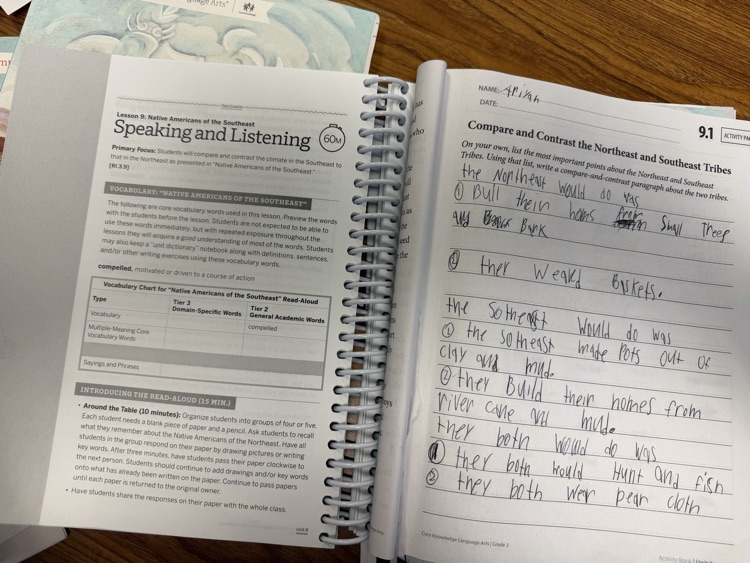 Language Arts"
Lesson 9: Native Americans of the Southeast
Speaking and Listening
60M
Primary Focus: Students will compare and contrast the climate in the Southeast to
that in the Northeast as presented in "Native Americans of the Southeast."
[RI.3.9]
VOCABULARY: "NATIVE AMERICANS OF THE SOUTHEAST"
The following are core vocabulary words used in this lesson. Preview the words
with the students before the lesson. Students are not expected to be able to
use these words immediately, but with repeated exposure throughout the
lessons they will acquire a good understanding of most of the words. Students
may also keep a "unit dictionary" notebook along with definitions, sentences,
and/or other writing exercises using these vocabulary words.
compelled, motivated or driven to a course of action
Vocabulary Chart for "Native Americans of the Southeast" Read-Aloud
Type Tier 3 Domain-Specific Words Tier 2 General Academic Words
Vocabulary compelled
Multiple-Meaning Core
Vocabulary Words
Sayings and Phrases
INTRODUCING THE READ-ALOUD (15 MIN.)
• Around the Table (10 minutes): Organize students into groups of four or five.
Each student needs a blank piece of paper and a pencil. Ask students to recall
what they remember about the Native Americans of the Northeast. Have all
students in the group respond on their paper by drawing pictures or writing
key words. After three minutes, have students pass their paper clockwise to
the next person. Students should continue to add drawings and/or key words
onto what has already been written on the paper. Continue to pass papers
until each paper is returned to the original owner.
• Have students share the responses on their paper with the whole class.
Unit 8
NAME:
DATE:
9.1
ACTIVITY PA
Compare and Contrast the Northeast and Southeast Tribes
On your own, list the most important points about the Northeast and Southeast
Tribes. Using that list, write a compare-and-contrast paragraph about the two tribes.
the Northeast would do was
① Bull thein homs Small Theep
and Bark
② ther Weard Baskets.
the sotheast Would do was
① the sotheast made Pots out of
clay and mud.
② they Build their homes from
river cane and mud.
they both would do was
① they both would Hunt and fish
② they both wear bear cloth
Core Knowledge Language Arts | Grade 3
Activity Book |